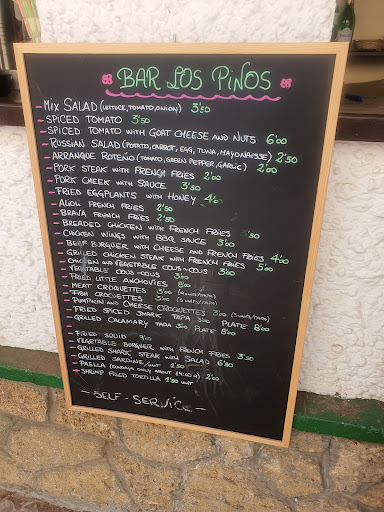 BAR LOS PINOS
- MIX SALAD (LETTUCE, TOMATO, ONION) 3'50
- SPICED TOMATO 3'50
- SPICED TOMATO WITH GOAT CHEESE AND NUTS 6'00
- RUSSIAN SALAD (POTATO, CARROT, EGG, TUNA, MAYONAISSE) 2'50
- ARRANQUE ROTEÑO (TOMATO, GREEN PEPPER, GARLIC) 2'00
- PORK STEAK WITH FRENCH FRIES 2'00
- PORK CHEEK WITH SAUCE 3'50
- FRIED EGGPLANTS WITH HONEY 4'00
- ALIOLI FRENCH FRIES 2'50
- BRAVA FRENCH FRIES 2'50
- BREADED CHICKEN WITH FRENCH FRIES
- CHICKEN WINGS WITH BBQ SAUCE 3'00
- BEEF BURGUER WITH CHEESE AND FRENCH FRIES 4'00
- GRILLED CHICKEN STEAK WITH FRENCH FRIES 5'00
- CHICKEN AND VEGETABLE COUS-COUS 3'00
- VEGETABLE COUS-COUS 3'00
- FRIED LITTLE ANCHOVIES 8'00
- MEAT CROQUETTES 3'00
- FISH CROQUETTES 3'00
- PUMPKIN AND CHEESE CROQUETTES 3'00
- FRIED SPICED SHARK TAPA 3'00 PLATE 8'00
- GRILLED CALAMARY TAPA 3'00 PLATE 8'00
- FRIED SQUID 9'00
- VEGETABLE BURGUER WITH FRENCH FRIES 3'50
- GRILLED SHARK STEAK WITH SALAD 6'50
- GRILLED SARDINE/UNIT 1'50
- PAELLA (SUNDAYS ONLY ABOUT 14:00 H) 2'00
- SHRIMP FRIED TORTILLA 1'50 UNIT
- SELF-SERVICE -